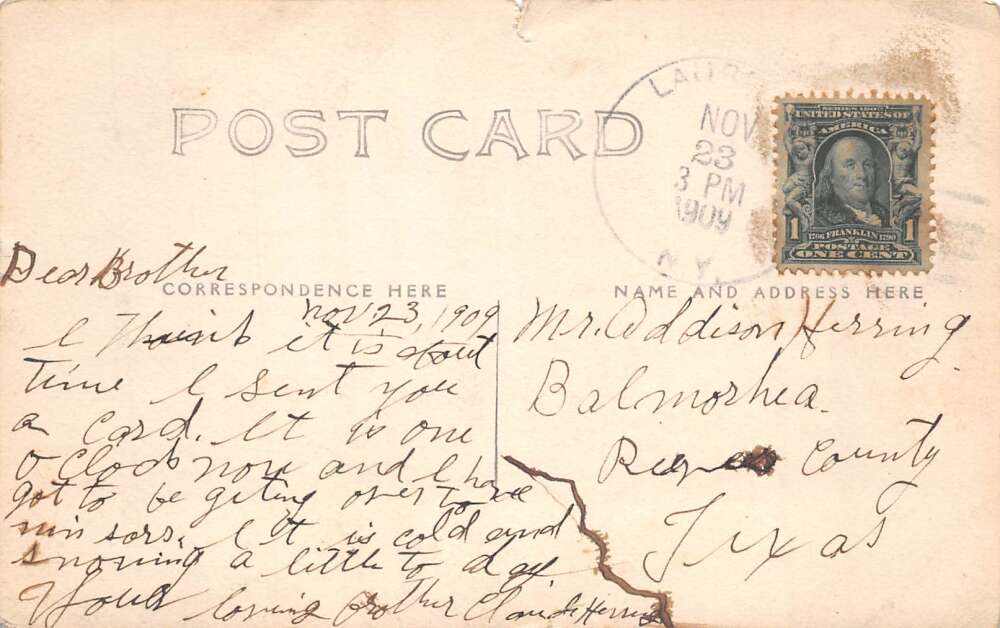 POST CARD
NOV
23
3 PM
1909
N.Y.
SERIES 1902
UNITED STATES OF
AMERICA
1 1
1706 FRANKLIN 1790
POSTAGE
ONE CENT
CORRESPONDENCE HERE
NAME AND ADDRESS HERE
Dear Brother
Nov 23, 1909
I Think it is about
time I sent you
a card. It is one
o clock now and I have
got to be geting over to
. It is cold and
snowing a little to day.
Your loving Brother Claude Herring
Mr. Addison Herring.
Balmorhea.
County
Texas